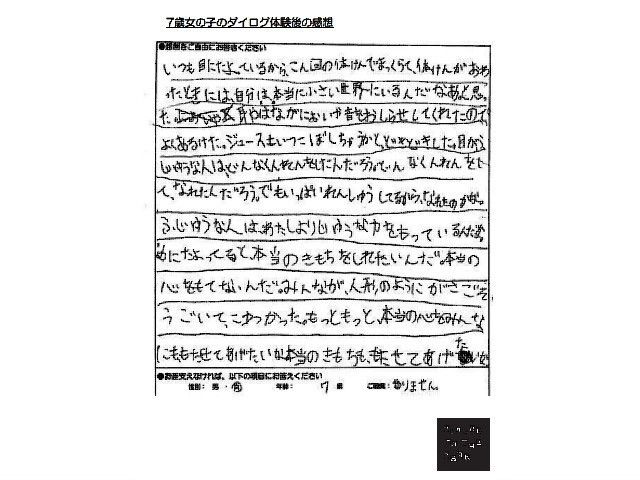 7歳女の子のダイログ体験後の感想
●感想をご自由にお書きください
いつも目にたよっているから、こん回の体けんでまっくらで、体けんがおわ
ったときには、自分は、本当に小さい世界にいるんだなあ。と思っ
た。耳やはながにおいや音をおしらせしてくれたので、
よくあるけた。ジュースもいつこぼしちゃうかと、どきどきした。目が
じゆうな人は、どんなくんれんをしたんだろう。どんなくんれんをし
て、なれたんだろう。でもいっぱいれんしゅうしてるから、なれたのかな。
ふじゆうな人は、あたしよりじゆうな力をもっているんだ。
めにたよってると、本当のきもちをしれたいんだ。本当の
心をもてないんだ。みんなが、人形のようにがさごそ
うごいて、こわかった。もっともっと、本当の心をみんな
にももたせてあげたいな。本当のきもちも、もたせてあげたいな
●お差支えなければ、以下の項目にお答えください
性別: 男・女 年齢: 7 歳 ご職業: ありません。